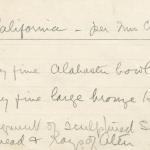 California - per Mrs C
y fine Alabaster bowl
y fine large bronze
of sculptured S
head & Rays of Aten